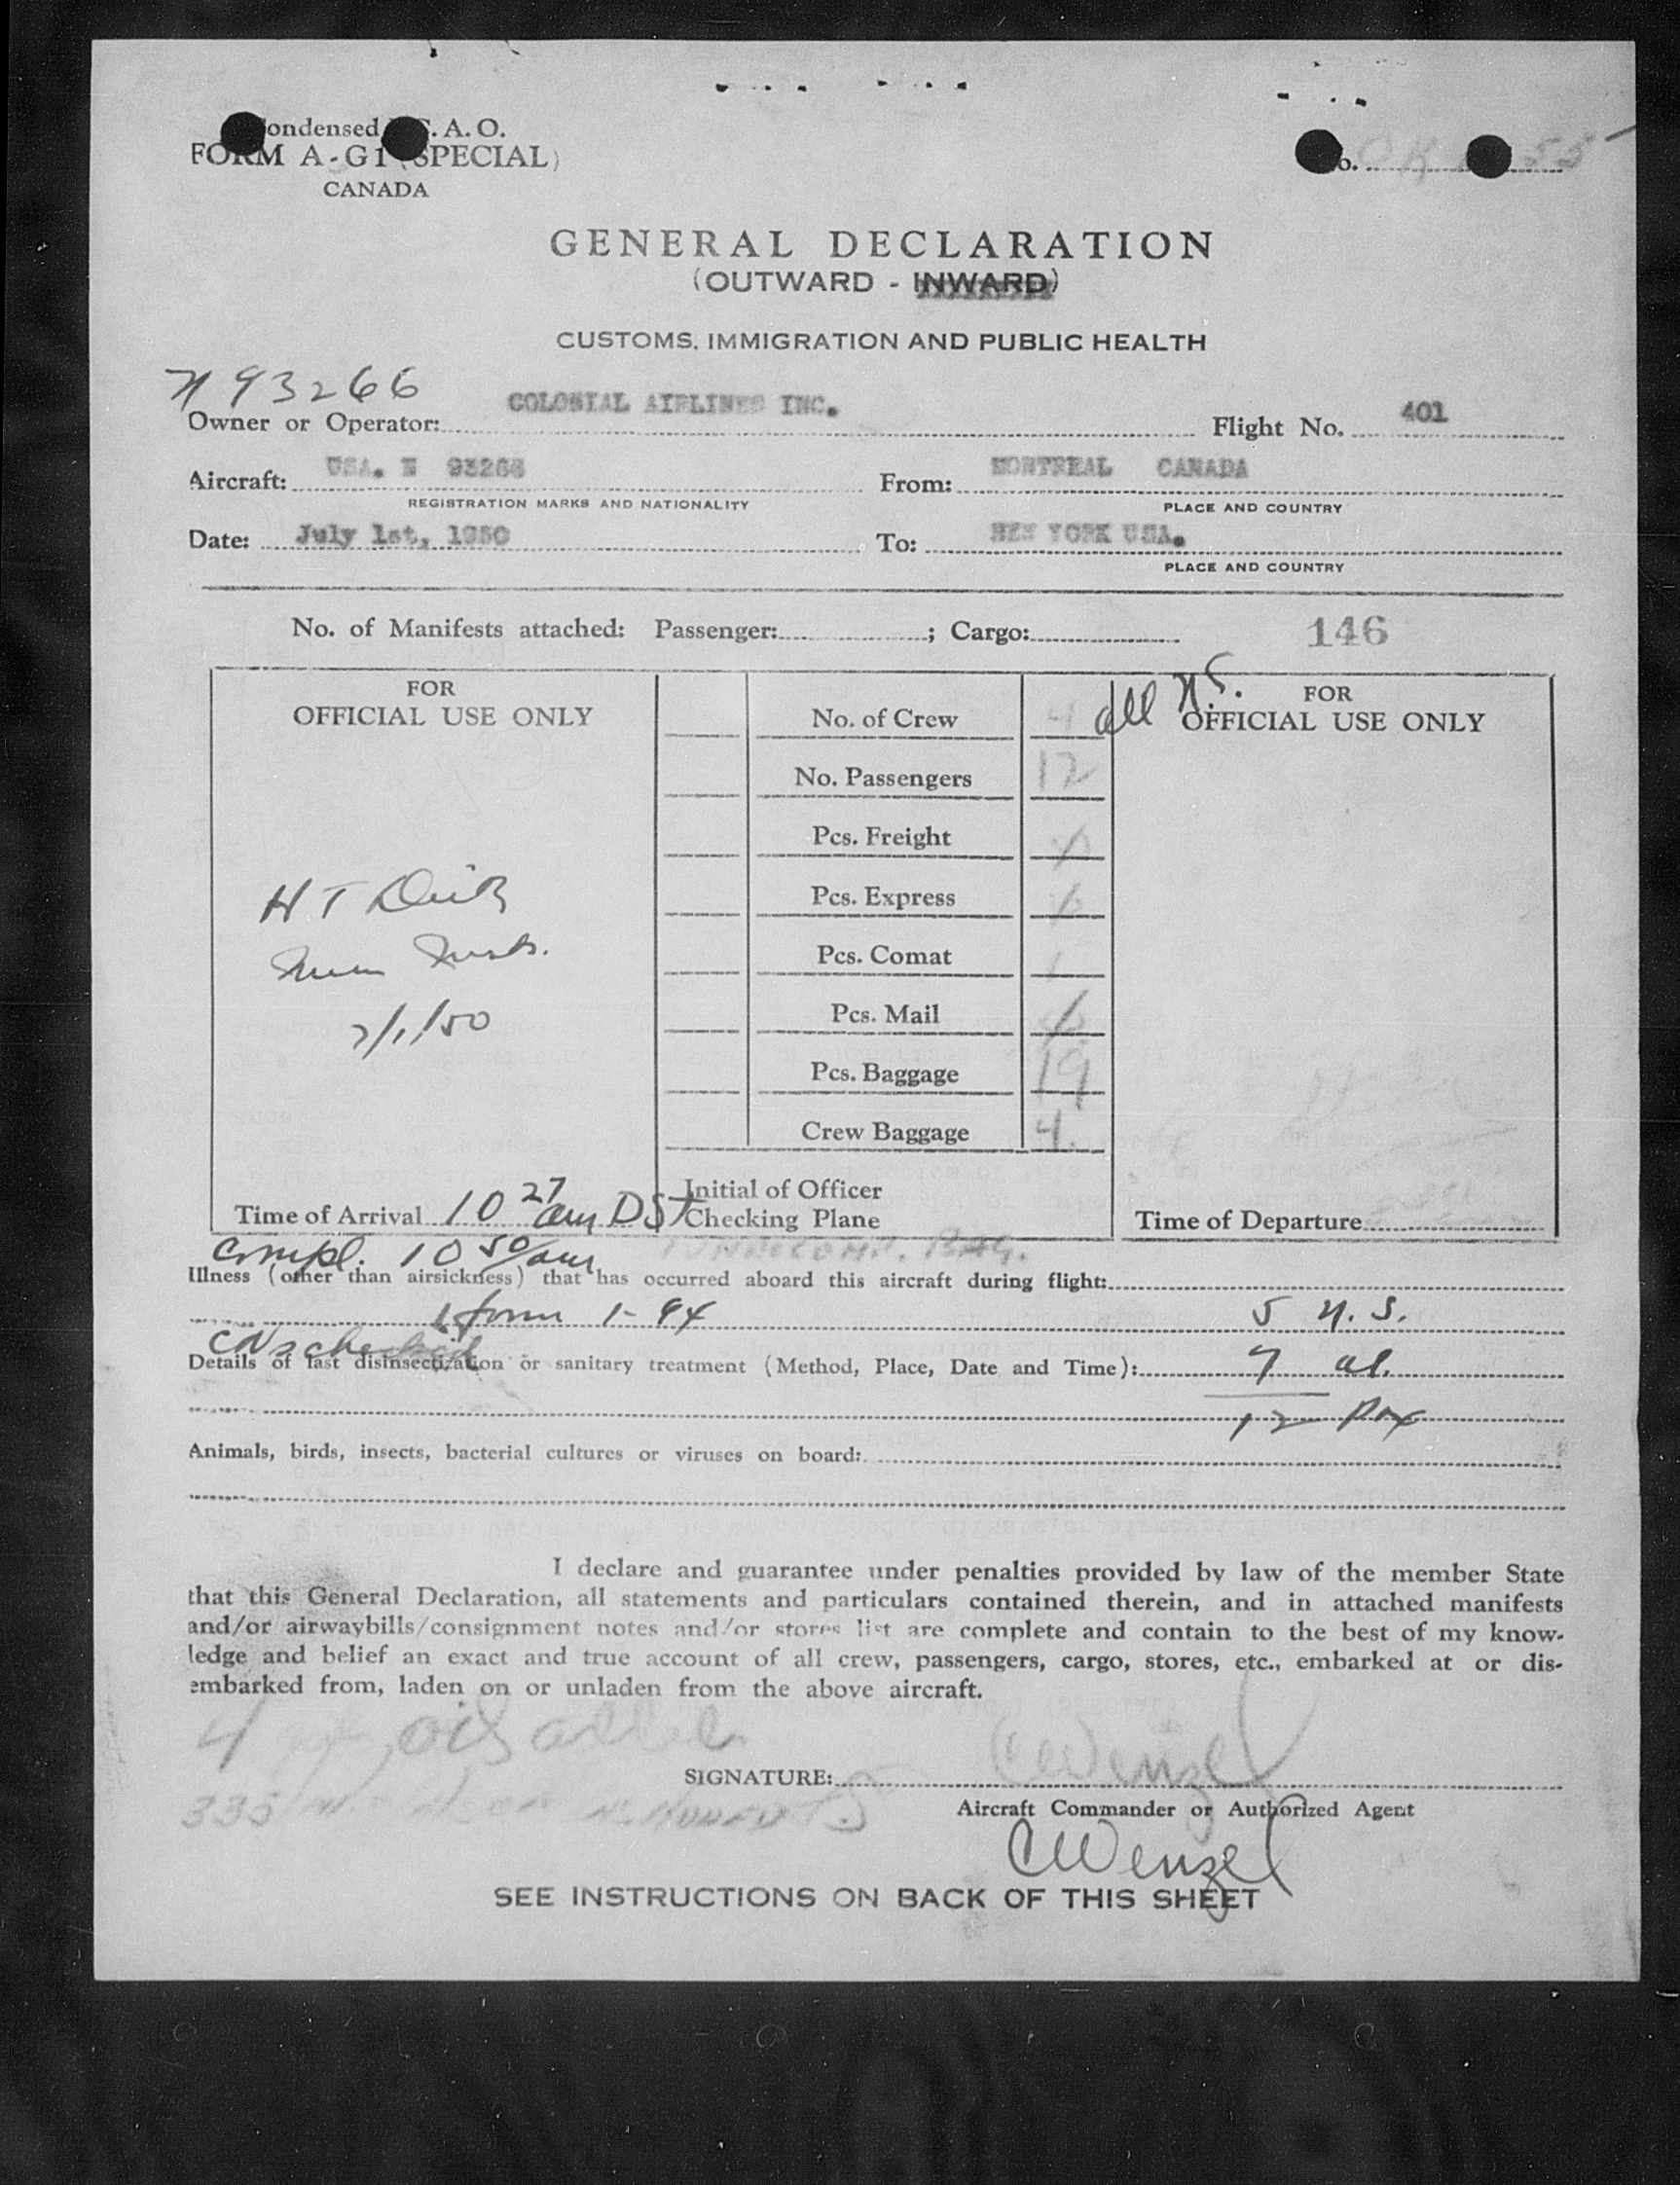 Condensed I.C.A.O.
FORM A-G1 (SPECIAL)
CANADA
No.
GENERAL DECLARATION
(OUTWARD - INWARD)
CUSTOMS, IMMIGRATION AND PUBLIC HEALTH
N 93266
Owner or Operator: COLONIAL AIRLINES INC. Flight No. 401
Aircraft: USA. N 93266 From: MONTREAL CANADA
REGISTRATION MARKS AND NATIONALITY PLACE AND COUNTRY
Date: July 1st, 1950 To: NEW YORK USA.
PLACE AND COUNTRY
No. of Manifests attached: Passenger: ; Cargo: 146
FOR
OFFICIAL USE ONLY
No. of Crew 4
No. Passengers 12
Pcs. Freight
Pcs. Express
Pcs. Comat
Pcs. Mail
Pcs. Baggage 19
Crew Baggage 4.
all
FOR
OFFICIAL USE ONLY
H T
7/1/50
Time of Arrival 10 27 am DST
Initial of Officer
Checking Plane
Time of Departure
Compl. 10 50/am
BAG.
Illness (other than airsickness) that has occurred aboard this aircraft during flight:
form 1-94 5 N.S.
checked
Details of last disinsectization or sanitary treatment (Method, Place, Date and Time): 7 al.
12 pax
Animals, birds, insects, bacterial cultures or viruses on board:
I declare and guarantee under penalties provided by law of the member State
that this General Declaration, all statements and particulars contained therein, and in attached manifests
and/or airwaybills/consignment notes and/or stores list are complete and contain to the best of my know-
ledge and belief an exact and true account of all crew, passengers, cargo, stores, etc., embarked at or dis-
embarked from, laden on or unladen from the above aircraft.
4
SIGNATURE: CWenzel
335
Aircraft Commander or Authorized Agent
CWenzel
SEE INSTRUCTIONS ON BACK OF THIS SHEET